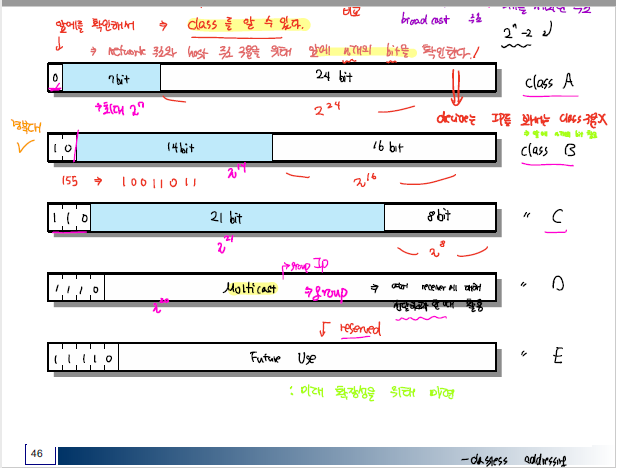 앞에를 확인해서 → class를 알 수 있다.
broadcast 주소
2ⁿ-2
→ network 주소와 host 주소 구분을 위해 앞에 n개의 bit을 확인한다!
0 7bit 24 bit class A
→ 최대 2⁷ 2²⁴
device는 IP를 보내는 class 구분X
경북대
1 0 14bit 16 bit class B
155 ⇒ 10011011 2¹⁴ 2¹⁶
1 1 0 21 bit 8bit " C
2²¹ 2⁸
→ group IP
1 1 1 0 Multicast → group ⇒ receiver " D
reserved
1 1 1 1 0 Future Use " E
: 미래 확장성을 위해 마련
46
- classless addressing